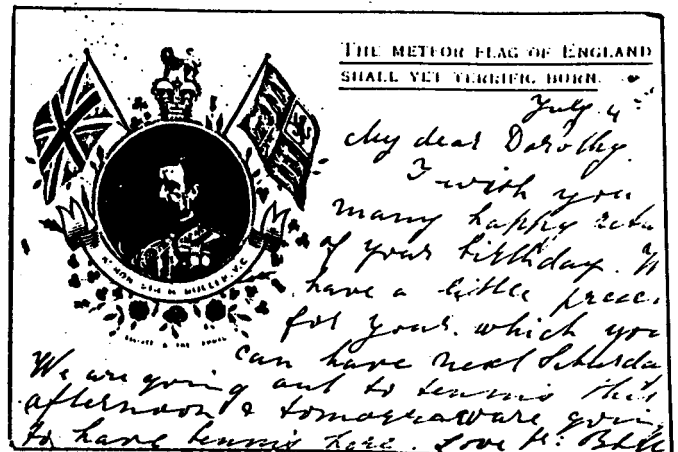 THE METEOR FLAG OF ENGLAND
SHALL YET TERRIFIC BURN.
July 4
My dear Dorothy.
I wish you
many happy retu
of your birthday.
have a little prese
for your. which you
can have next Saturda
We are going out to tennis this
afternoon & tomorrow we are going
to have tennis here. Love
RT HON SIR R. BULLER. V.C.